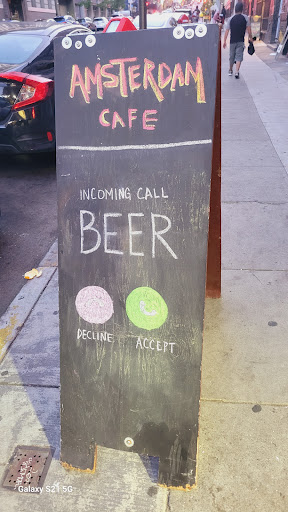 AMSTERDAM
CAFE
INCOMING CALL
BEER
DECLINE ACCEPT
Galaxy S21 5G